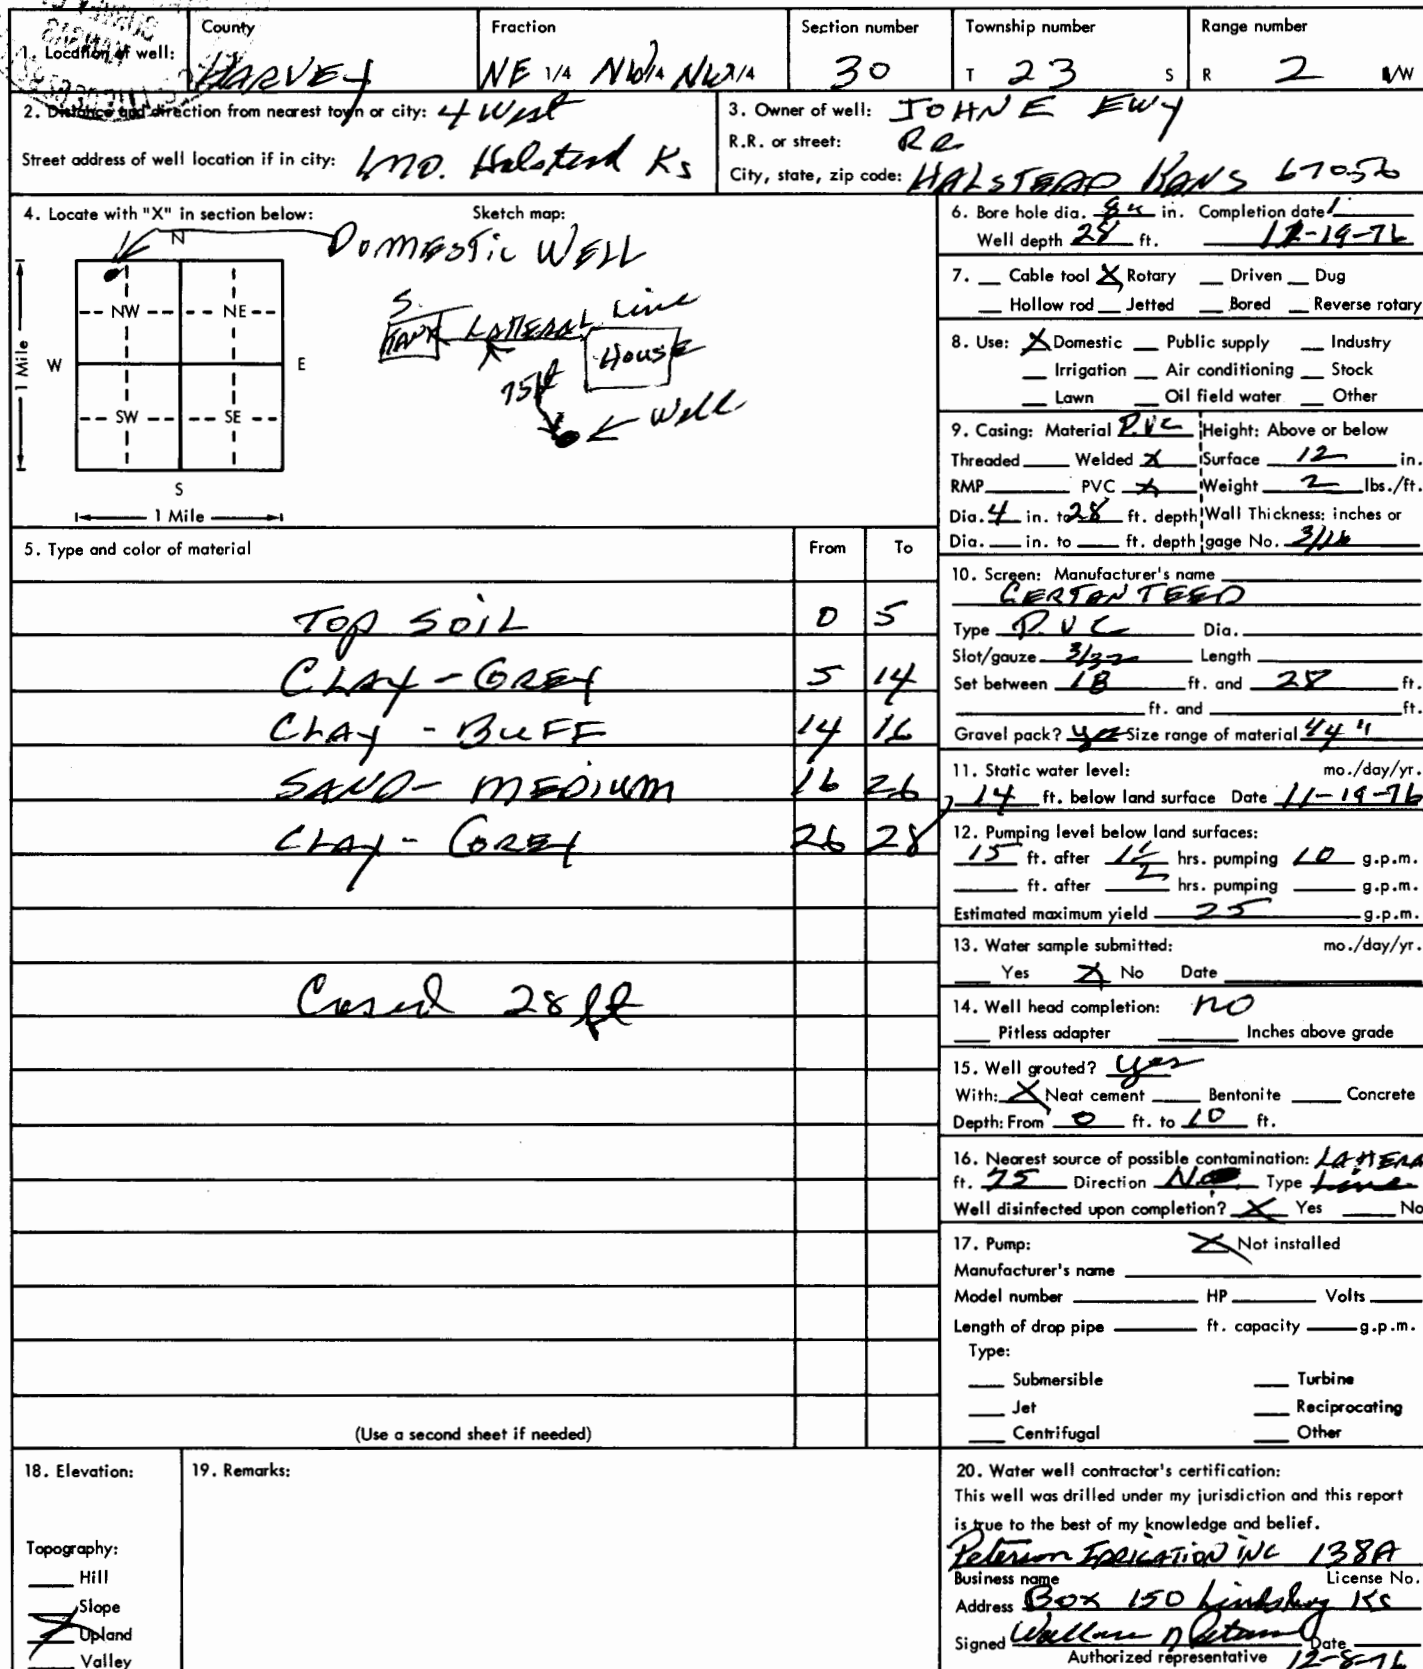 County Fraction Section number Township number Range number
1. Location of well: HARVEY NE 1/4 NW 1/4 NW 1/4 30 T 23 S R 2 /W
2. Distance and direction from nearest town or city: 4 West 3. Owner of well: JOHN E EWY
R.R. or street: RR
Street address of well location if in city: Halstead Ks City, state, zip code: HALSTEAD KANS 67056
4. Locate with "X" in section below: Sketch map:
N DOMESTIC WELL
NW NE
W E
SW SE
S
1 Mile
1 Mile
S. TANK LATERAL Line
HOUSE
75ft
Well
5. Type and color of material From To
TOP SOIL 0 5
CLAY - GREY 5 14
CLAY - BUFF 14 16
SAND - MEDIUM 16 26
CLAY - GREY 26 28
Cased 28 ft
(Use a second sheet if needed)
6. Bore hole dia. in. Completion date
Well depth 28 ft. -19-76
7. Cable tool X Rotary Driven Dug
Hollow rod Jetted Bored Reverse rotary
8. Use: X Domestic Public supply Industry
Irrigation Air conditioning Stock
Lawn Oil field water Other
9. Casing: Material P.V.C Height: Above or below
Threaded Welded X Surface 12 in.
RMP PVC X Weight 2 lbs./ft.
Dia. 4 in. to 28 ft. depth Wall Thickness: inches or
Dia. in. to ft. depth gage No. 3/16
10. Screen: Manufacturer's name
CERTANTEED
Type P.V.C Dia.
Slot/gauze 3/32 Length
Set between 18 ft. and 28 ft.
ft. and ft.
Gravel pack? yes Size range of material
11. Static water level: mo./day/yr.
14 ft. below land surface Date 11-19-76
12. Pumping level below land surfaces:
15 ft. after 1 1/2 hrs. pumping 10 g.p.m.
ft. after hrs. pumping g.p.m.
Estimated maximum yield 25 g.p.m.
13. Water sample submitted: mo./day/yr.
Yes X No Date
14. Well head completion: NO
Pitless adapter Inches above grade
15. Well grouted? yes
With: X Neat cement Bentonite Concrete
Depth: From 0 ft. to 10 ft.
16. Nearest source of possible contamination: LATERA
ft. 75 Direction Type Line
Well disinfected upon completion? X Yes No
17. Pump: X Not installed
Manufacturer's name
Model number HP Volts
Length of drop pipe ft. capacity g.p.m.
Type:
Submersible Turbine
Jet Reciprocating
Centrifugal Other
18. Elevation: 19. Remarks:
Topography:
Hill
Slope
X Upland
Valley
20. Water well contractor's certification:
This well was drilled under my jurisdiction and this report
is true to the best of my knowledge and belief.
Peterson IRRIGATION INC 138A
Business name License No.
Address Box 150 Lindsborg KS
Signed Peterson Date
Authorized representative 12-8-76